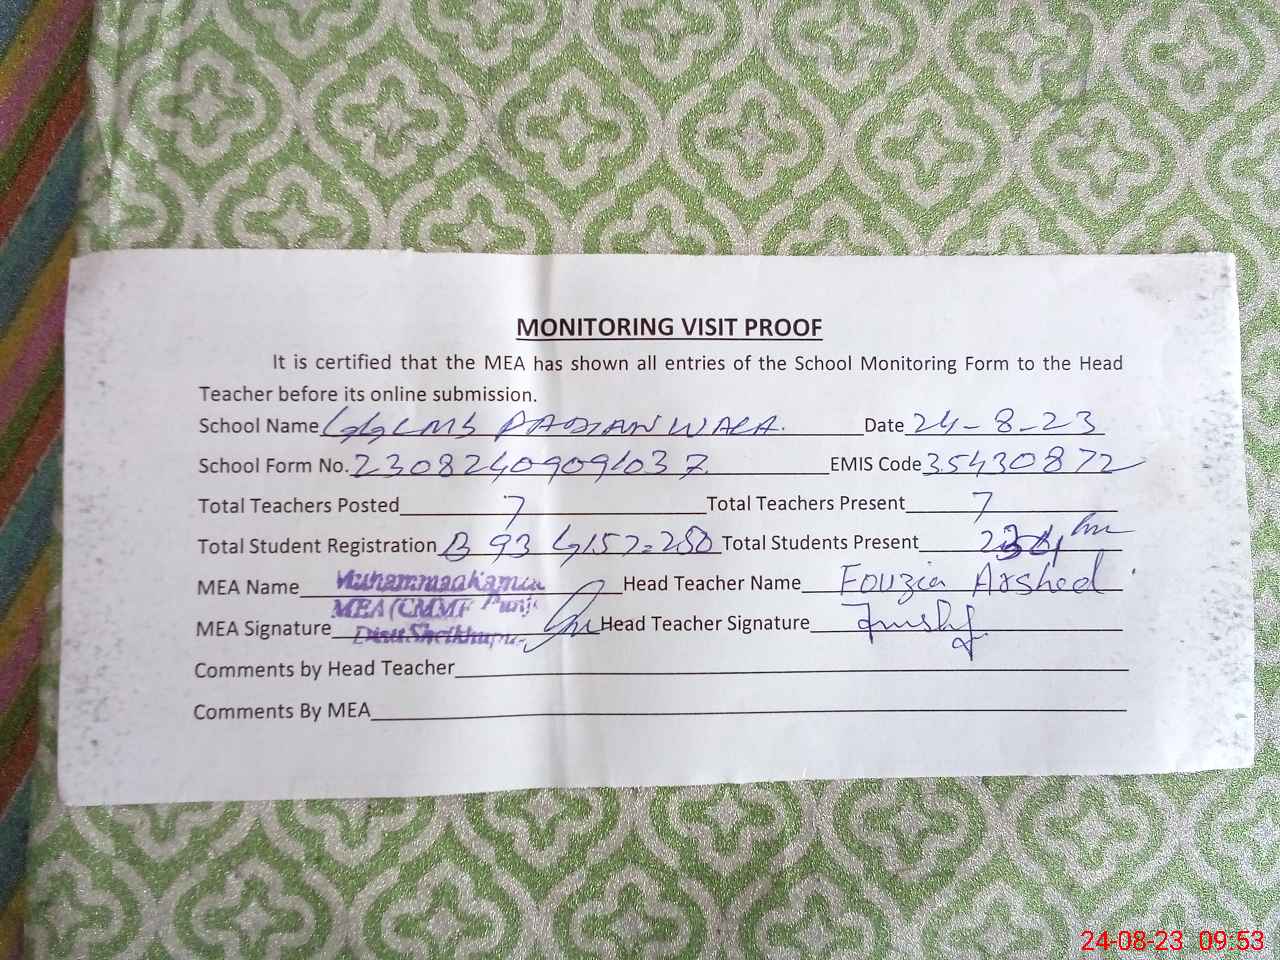 MONITORING VISIT PROOF
It is certified that the MEA has shown all entries of the School Monitoring Form to the Head
Teacher before its online submission.
School Name GGCMS Date 24-8-23
School Form No. EMIS Code 35430872
Total Teachers Posted 7 Total Teachers Present 7
Total Student Registration B 93 G157=250 Total Students Present
MEA Name Muhammad Head Teacher Name Fouzia Arshed
MEA (CMMF
MEA Signature Head Teacher Signature
Distt. Sheikhupura
Comments by Head Teacher
Comments By MEA
24-08-23 09:53